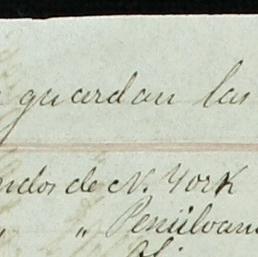 guardan las
de N. York
" " Pensilvan